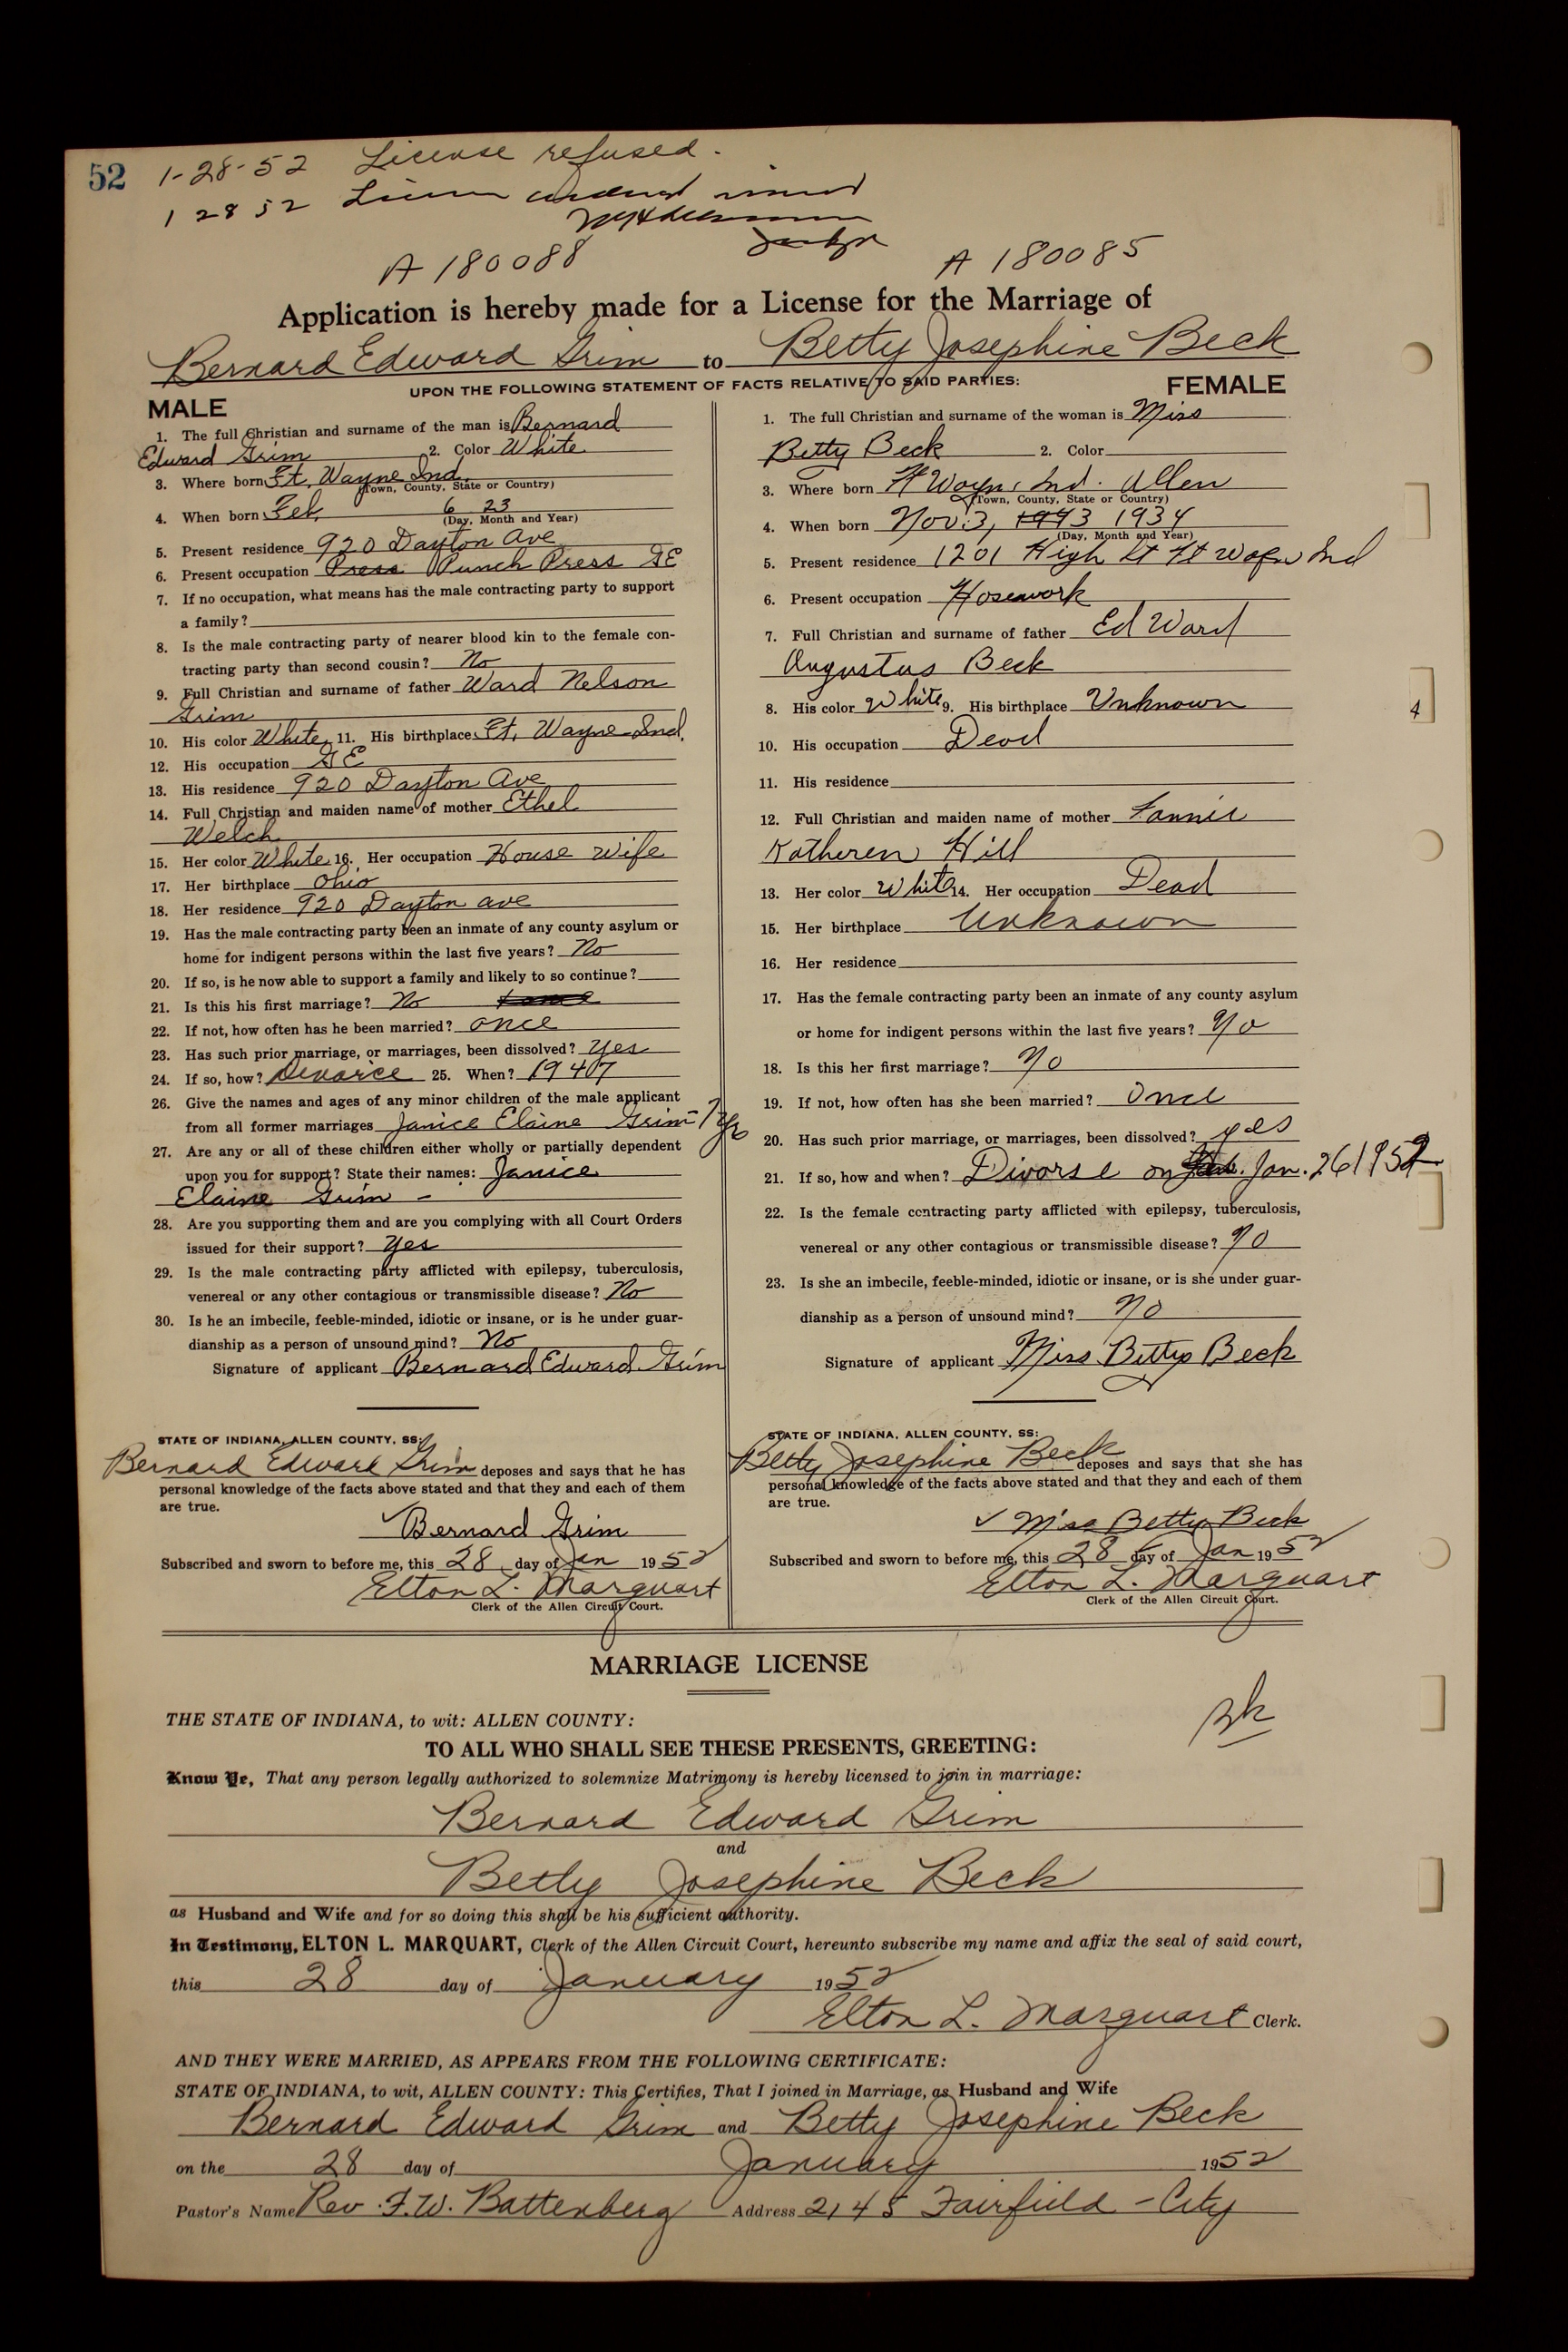 52 1-28-52 License refused.
1 28 52 License ordered issued
Judge
A 180088 A 180085
Application is hereby made for a License for the Marriage of
Bernard Edward Grim to Betty Josephine Beck
UPON THE FOLLOWING STATEMENT OF FACTS RELATIVE TO SAID PARTIES:
MALE
1. The full Christian and surname of the man is Bernard
Edward Grim 2. Color White
3. Where born Ft. Wayne Ind.
(Town, County, State or Country)
4. When born Feb. 6 23
(Day, Month and Year)
5. Present residence 920 Dayton Ave
6. Present occupation Press Punch Press GE
7. If no occupation, what means has the male contracting party to support
a family?
8. Is the male contracting party of nearer blood kin to the female con-
tracting party than second cousin? No
9. Full Christian and surname of father Ward Nelson
Grim
10. His color White 11. His birthplace Ft. Wayne Ind.
12. His occupation GE
13. His residence 920 Dayton Ave
14. Full Christian and maiden name of mother Ethel
Welch
15. Her color White 16. Her occupation House wife
17. Her birthplace Ohio
18. Her residence 920 Dayton ave
19. Has the male contracting party been an inmate of any county asylum or
home for indigent persons within the last five years? No
20. If so, is he now able to support a family and likely to so continue?
21. Is this his first marriage? No
22. If not, how often has he been married? once
23. Has such prior marriage, or marriages, been dissolved? yes
24. If so, how? Divorice 25. When? 1947
26. Give the names and ages of any minor children of the male applicant
from all former marriages Janice Elaine Grim - 7 yr
27. Are any or all of these children either wholly or partially dependent
upon you for support? State their names: Janice
Elaine Grim -
28. Are you supporting them and are you complying with all Court Orders
issued for their support? Yes
29. Is the male contracting party afflicted with epilepsy, tuberculosis,
venereal or any other contagious or transmissible disease? No
30. Is he an imbecile, feeble-minded, idiotic or insane, or is he under guar-
dianship as a person of unsound mind? No
Signature of applicant Bernard Edward Grim
STATE OF INDIANA, ALLEN COUNTY, SS:
Bernard Edward Grim deposes and says that he has
personal knowledge of the facts above stated and that they and each of them
are true.
Bernard Grim
Subscribed and sworn to before me, this 28 day of Jan 1952
Elton L. Marquart
Clerk of the Allen Circuit Court.
FEMALE
1. The full Christian and surname of the woman is Miss
Betty Beck 2. Color
3. Where born Ft Wayn, Ind. Allen
(Town, County, State or Country)
4. When born Nov. 3, 1943 1934
(Day, Month and Year)
5. Present residence 1201 High St Ft Wayn Ind
6. Present occupation Hosework
7. Full Christian and surname of father Ed Ward
Augustus Beck
8. His color White 9. His birthplace Unknown
10. His occupation Dead
11. His residence
12. Full Christian and maiden name of mother Fannie
Katheren Hill
13. Her color White 14. Her occupation Dead
15. Her birthplace Unknown
16. Her residence
17. Has the female contracting party been an inmate of any county asylum
or home for indigent persons within the last five years? No
18. Is this her first marriage? No
19. If not, how often has she been married? Once
20. Has such prior marriage, or marriages, been dissolved? yes
21. If so, how and when? Divorse on Jan. 26 1952
22. Is the female contracting party afflicted with epilepsy, tuberculosis,
venereal or any other contagious or transmissible disease? No
23. Is she an imbecile, feeble-minded, idiotic or insane, or is she under guar-
dianship as a person of unsound mind? No
Signature of applicant Miss Betty Beck
STATE OF INDIANA, ALLEN COUNTY, SS:
Betty Josephine Beck deposes and says that she has
personal knowledge of the facts above stated and that they and each of them
are true.
✓ Miss Betty Beck
Subscribed and sworn to before me, this 28 day of Jan 1952
Elton L. Marquart
Clerk of the Allen Circuit Court.
4
MARRIAGE LICENSE
THE STATE OF INDIANA, to wit: ALLEN COUNTY:
TO ALL WHO SHALL SEE THESE PRESENTS, GREETING:
Know Ye, That any person legally authorized to solemnize Matrimony is hereby licensed to join in marriage:
Bernard Edward Grim
and
Betty Josephine Beck
as Husband and Wife and for so doing this shall be his sufficient authority.
In Testimony, ELTON L. MARQUART, Clerk of the Allen Circuit Court, hereunto subscribe my name and affix the seal of said court,
this 28 day of January 1952
Elton L. Marquart Clerk.
AND THEY WERE MARRIED, AS APPEARS FROM THE FOLLOWING CERTIFICATE:
STATE OF INDIANA, to wit, ALLEN COUNTY: This Certifies, That I joined in Marriage, as Husband and Wife
Bernard Edward Grim and Betty Josephine Beck
on the 28 day of January 1952
Pastor's Name Rev. F. W. Battenberg Address 2145 Fairfield - City